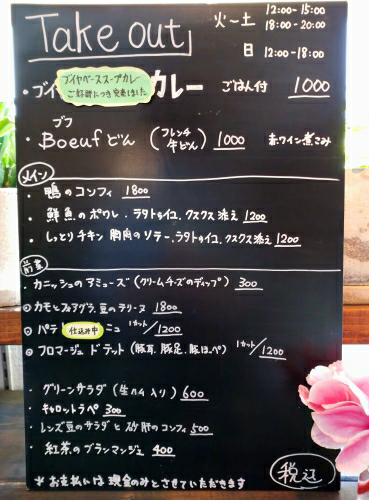 Take out
火〜土 12:00-15:00
18:00-20:00
日 12:00-18:00
・ブイ カレー ごはん付 1000
ブイヤベーススープカレー
ご好評につき完売しました
ブフ
・Boeufどん (フレンチ牛どん) 1000 赤ワイン煮こみ
メイン
・鴨のコンフィ 1800
・鮮魚のポワレ・ラタトゥイユ、クスクス添え 1200
・しっとりチキン 胸肉のソテー、ラタトゥイユ、クスクス添え 1200
前菜
・カニッシュのアミューズ (クリームチーズのディップ) 300
カモとフォアグラ、豆のテリーヌ 1800
パテ 仕込み中 ニュ 1カット/1200
フロマージュ ド テット (豚耳、豚足、豚ほっぺ) 1カット/1200
・グリーンサラダ (生ハム入り) 600
・キャロットラペ 300
・レンズ豆のサラダと砂肝のコンフィ 500
・紅茶のブランマンジェ 400
税込
＊お支払いは現金のみとさせていただきます